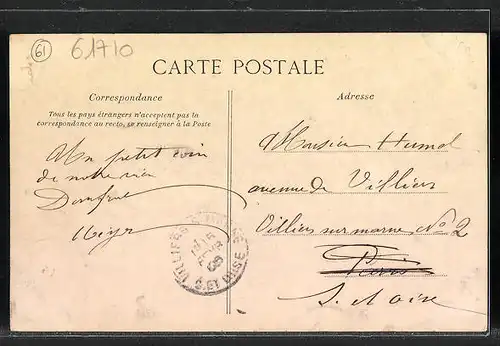 61
61710
CARTE POSTALE
Correspondance
Tous les pays étrangers n'acceptent pas la
correspondance au recto, se renseigner à la Poste
Un petit coin
de notre
Domfront
Adresse
Monsieur Humol
avenue de Villiers
Villiers sur marne No 2
Paris
S. et oise
VILLIERS
S. ET OISE